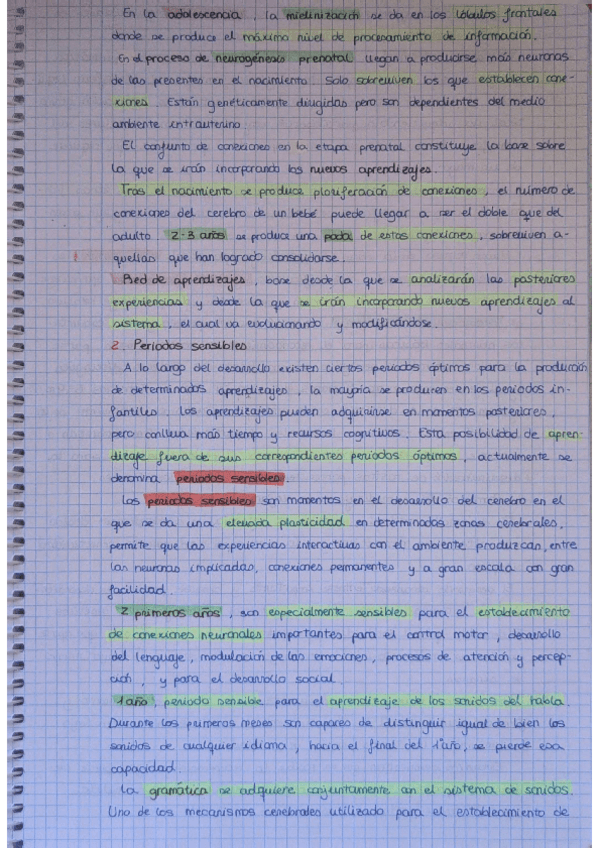 En la adolescencia, la mielinización se da en los lóbulos frontales
donde se produce el máximo nivel de procesamiento de información.
En el proceso de neurogénesis prenatal llegan a producirse más neuronas
de las presentes en el nacimiento. Solo sobreviven los que establecen cone-
xiones. Están genéticamente dirigidas pero son dependientes del medio
ambiente intrauterino.
El conjunto de conexiones en la etapa prenatal constituye la base sobre
la que se irán incorporando los nuevos aprendizajes.
Tras el nacimiento se produce ploriferación de conexiones, el número de
conexiones del cerebro de un bebé puede llegar a ser el doble que del
adulto. 2-3 años se produce una poda de estas conexiones, sobreviven a-
quellas que han logrado consolidarse.
Red de aprendizajes, base desde la que se analizarán las posteriores
experiencias y desde la que se irán incorporando nuevos aprendizajes al
sistema, el cual va evolucionando y modificándose.
2. Periodos sensibles
A lo largo del desarrollo existen ciertos periodos óptimos para la producción
de determinados aprendizajes, la mayoría se producen en los periodos in-
fantiles. Los aprendizajes pueden adquirirse en momentos posteriores,
pero conlleva más tiempo y recursos cognitivos. Esta posibilidad de apren-
dizaje fuera de sus correspondientes periodos óptimos, actualmente se
denomina periodos sensibles.
Los periodos sensibles son momentos en el desarrollo del cerebro en el
que se da una elevada plasticidad en determinadas zonas cerebrales,
permite que las experiencias interactivas con el ambiente produzcan, entre
las neuronas implicadas, conexiones permanentes y a gran escala con gran
facilidad.
2 primeros años, son especialmente sensibles para el establecimiento
de conexiones neuronales importantes para el control motor, desarrollo
del lenguaje, modulación de las emociones, procesos de atención y percep-
ción, y para el desarrollo social.
1 año, periodo sensible para el aprendizaje de los sonidos del habla.
Durante los primeros meses son capaces de distinguir igual de bien los
sonidos de cualquier idioma, hacia el final del 1º año, se pierde esa
capacidad.
La gramática se adquiere conjuntamente con el sistema de sonidos.
Uno de los mecanismos cerebrales utilizado para el establecimiento de